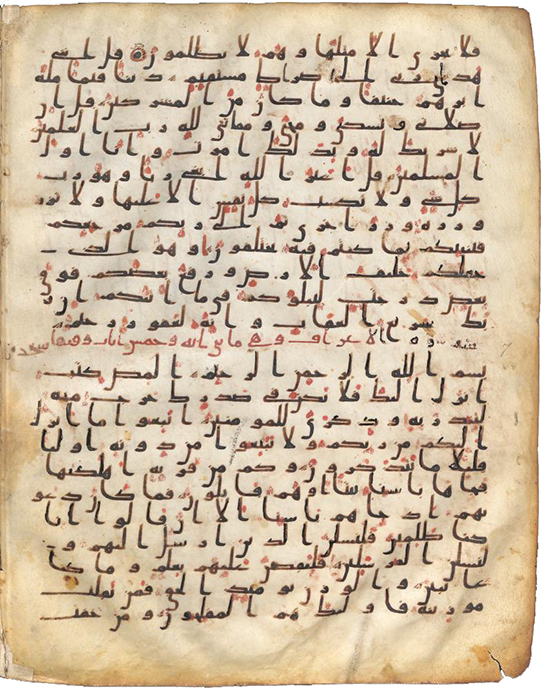 فلا يجزى الا مثلها وهم لا يظلمون قل اننى
هدينى ربى الى صرط مستقيم دينا قيما ملة
ابرهيم حنيفا وما كان من المشركين قل ان
صلاتى ونسكى ومحياى ومماتى لله رب العلمين
لا شريك له وبذلك امرت وانا اول
المسلمين قل اغير الله ابغى ربا وهو رب
كل شى ولا تكسب كل نفس الا عليها ولا تزر
وزرة وزر اخرى ثم الى ربكم مرجعكم
فينبيكم بما كنتم فيه تختلفون وهو الذى
جعلكم خليف الارض ورفع بعضكم فوق
بعض درجت ليبلوكم فى ما اتيكم ان ر
بك سريع العقاب وانه لغفور رحيم
سورة الاعراف وهى مايتى اية وخمس ايات
بسم الله الرحمن الرحيم المص كتب
انزل اليك فلا يكن فى صدرك حرج منه
لتنذر به وذكرى للمومنين اتبعوا ما انزل
اليكم من ربكم ولا تتبعوا من دونه اوليا
قليلا ما تذكرون وكم من قرية اهلكنها
فجاها باسنا بيتا او هم قايلون فما كان دعو
يهم اذ جاهم باسنا الا ان قالوا انا
كنا ظلمين فلنسلن الذين ارسل اليهم و
لنسلن المرسلين فلنقصن عليهم بعلم وما كنا
غايبين والوزن يوميذ الحق فمن ثقلت
موزينه فاوليك هم المفلحون ومن خفت